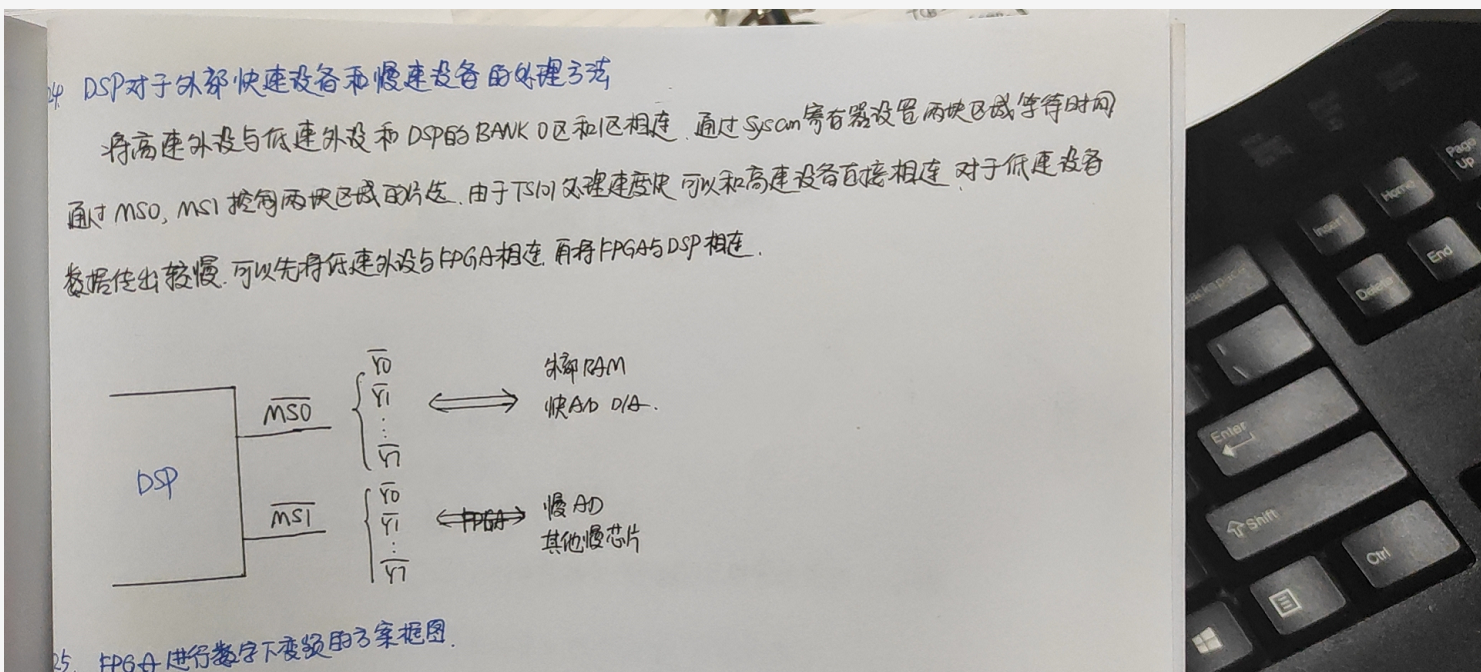 24. DSP对于外部快速设备和慢速设备的处理方法
将高速外设与低速外设和DSP的BANK 0区和1区相连.通过Syscon寄存器设置两块区域等待时间
通过MS0, MS1控制两块区域的片选.由于TS101处理速度快 可以和高速设备直接相连.对于低速设备
数据传出较慢.可以先将低速外设与FPGA相连 再将FPGA与DSP相连.
DSP
MS0
Y0
Y1
⋮
Y7
外部RAM
快AD D/A.
MS1
Y0
Y1
⋮
Y7
FPGA
慢AD
其他慢芯片
25. FPGA进行数字下变频的方案框图.
Backspace
Insert
Home
Page Up
Delete
End
Enter
Shift
Ctrl